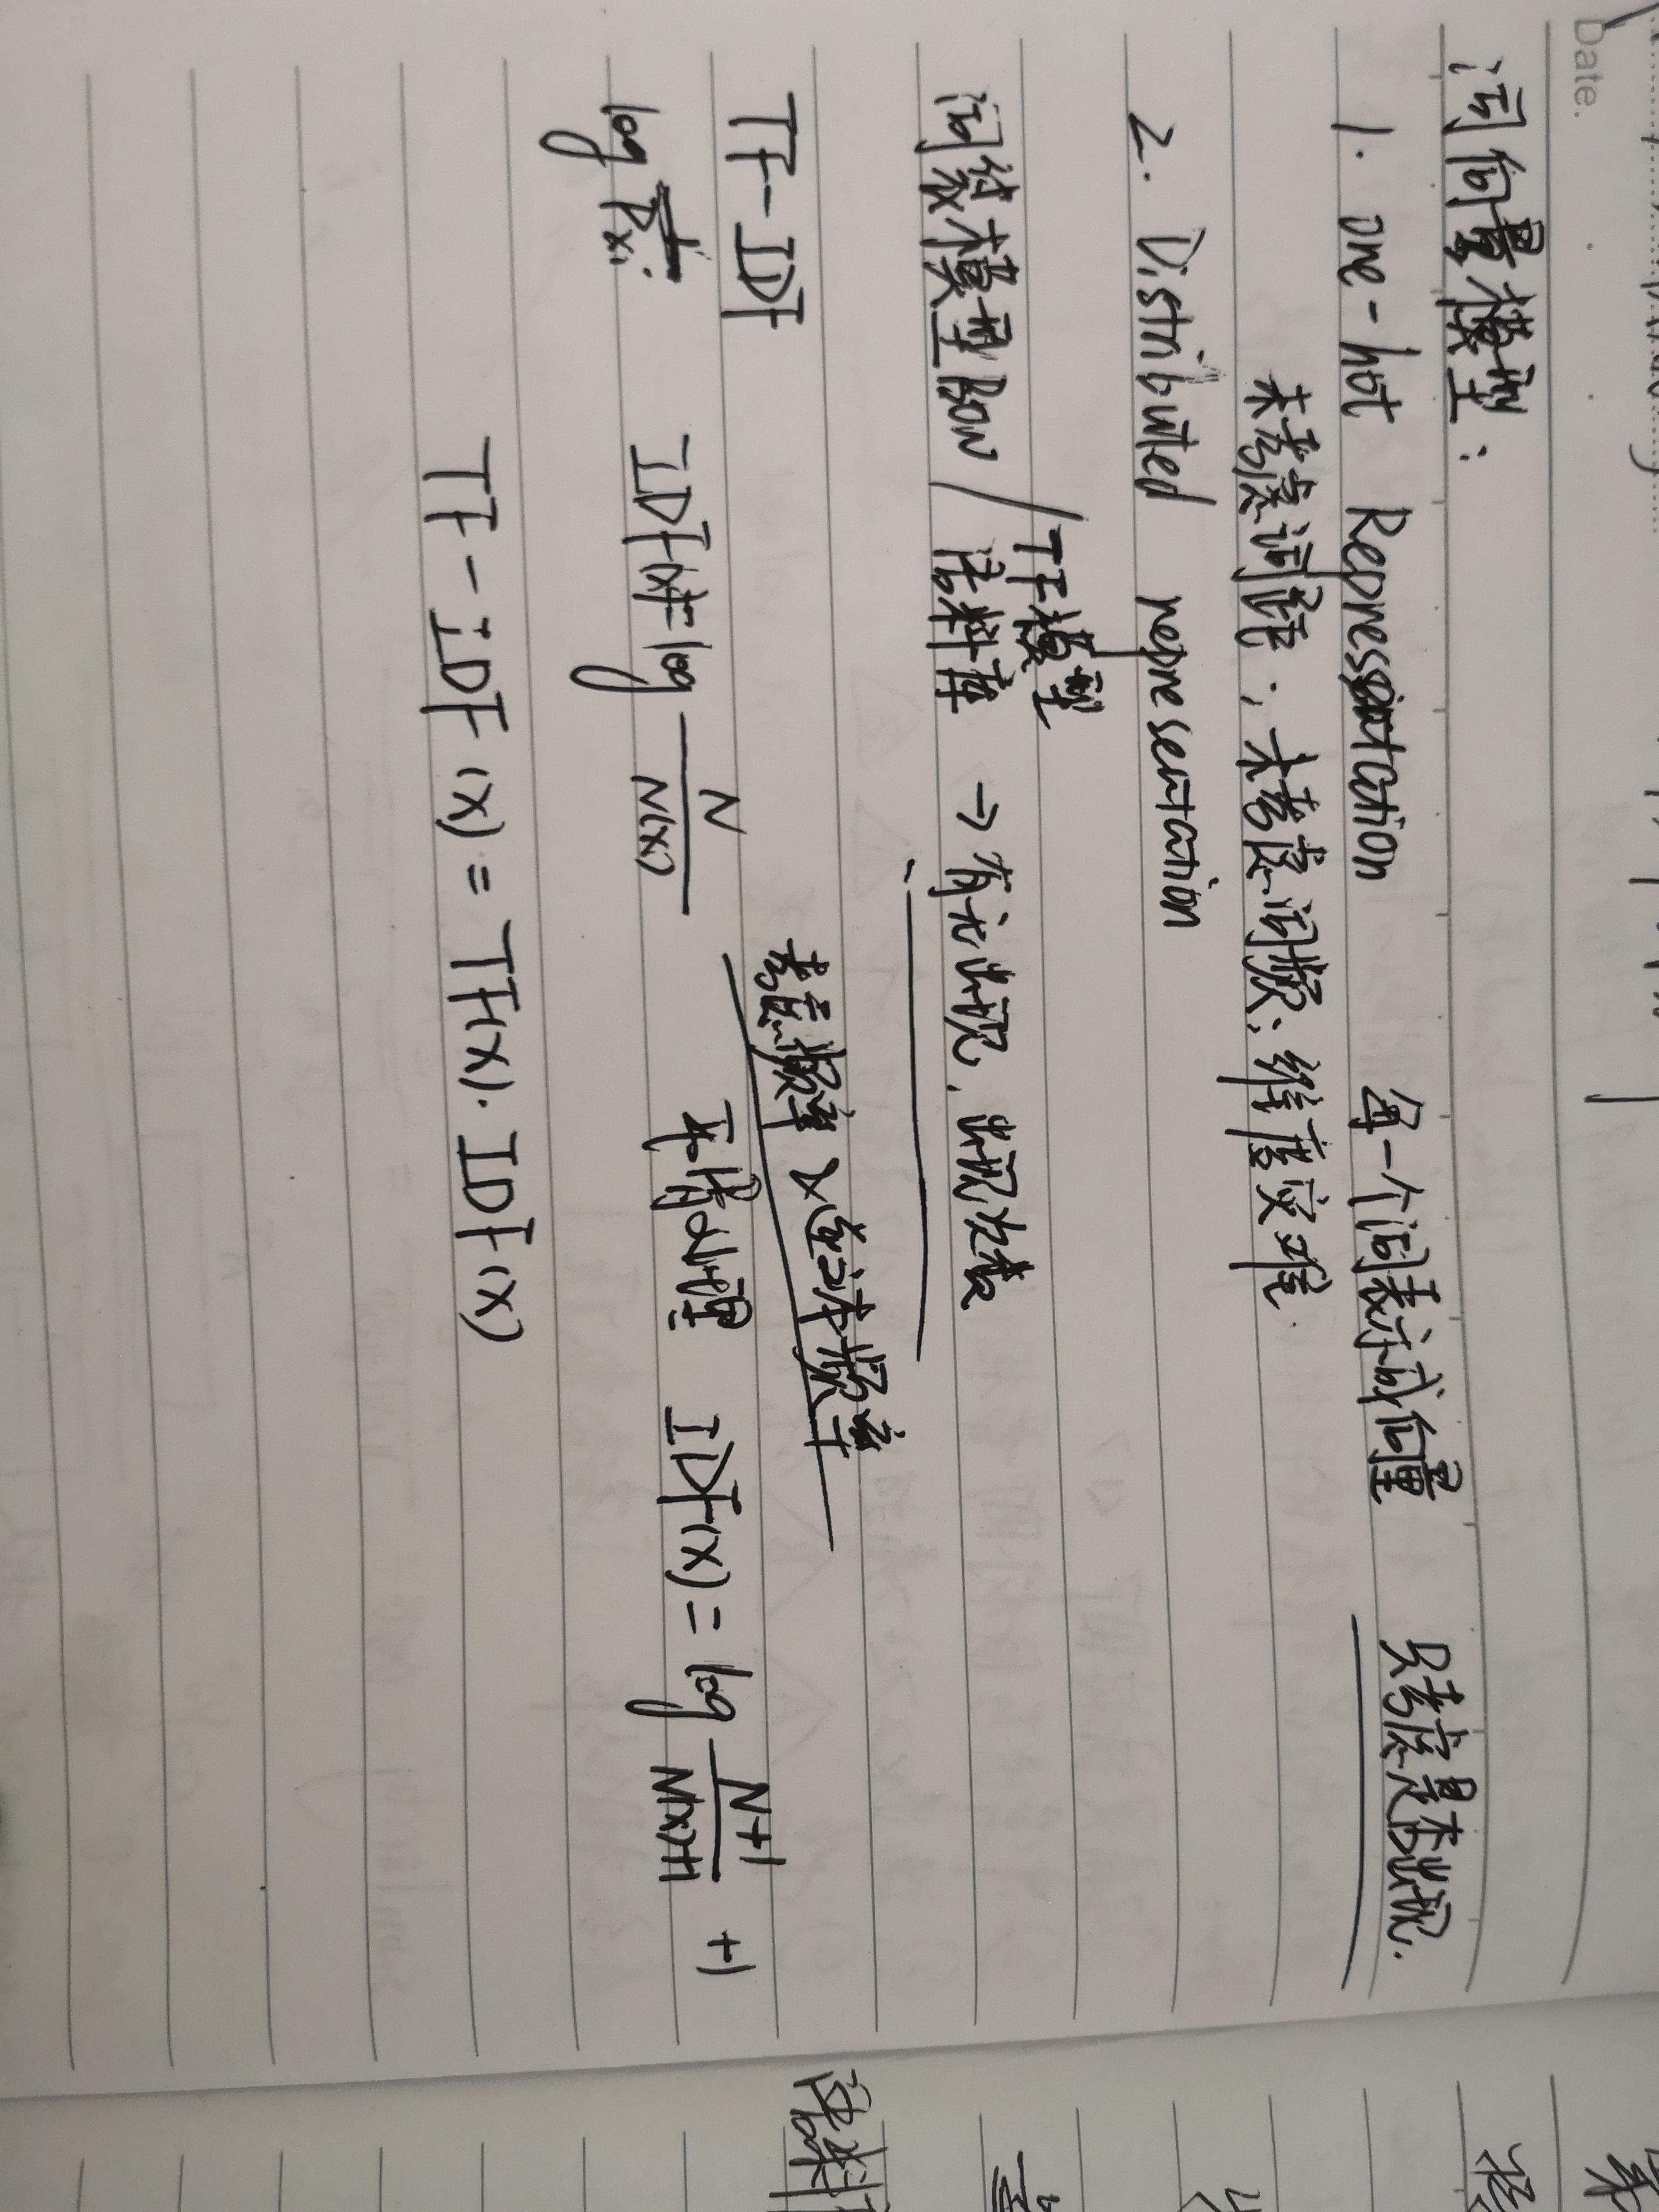 Date.
词向量模型：
1. one-hot Representation 每一个词表示成向量 只考虑是否出现.
未考虑词序；未考虑词频、维度灾难.
2. Distributed representation
TF模型
词袋模型BOW / 语料库 → 有无出现、出现次数
TF-IDF 考虑频率 × 逆文本频率
log 1/Pxi IDF(x)=log N/N(x) 平滑处理 IDF(x)=log N+1/N(x)+1 +1
TF-IDF (x) = TF(x)· IDF(x)
语料